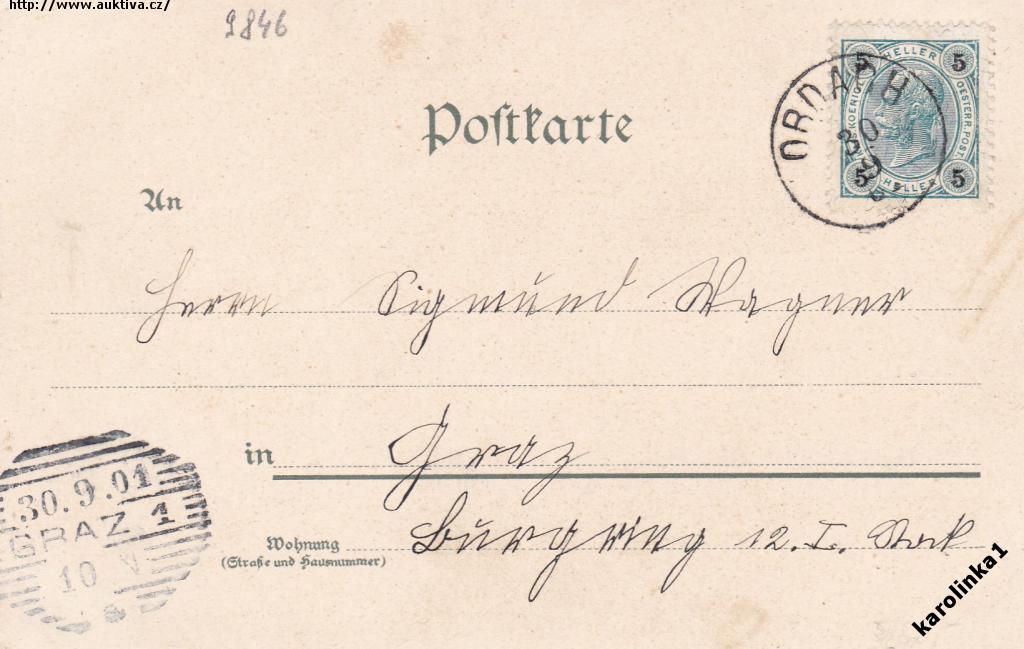 http://www.auktiva.cz/
9846
Postkarte
5 HELLER 5
KOENIGL. OESTERR. POST.
5 HELLER 5
OBDACH
30 9
An
Herrn Sigmund Wagner
in Graz
Wohnung
(Straße und Hausnummer)
Burgring 12. I. Stock
30.9.01
GRAZ 1
10 V
karolinka1